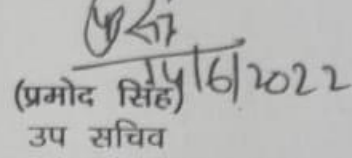 14/6/2022
(प्रमोद सिंह)
उप सचिव